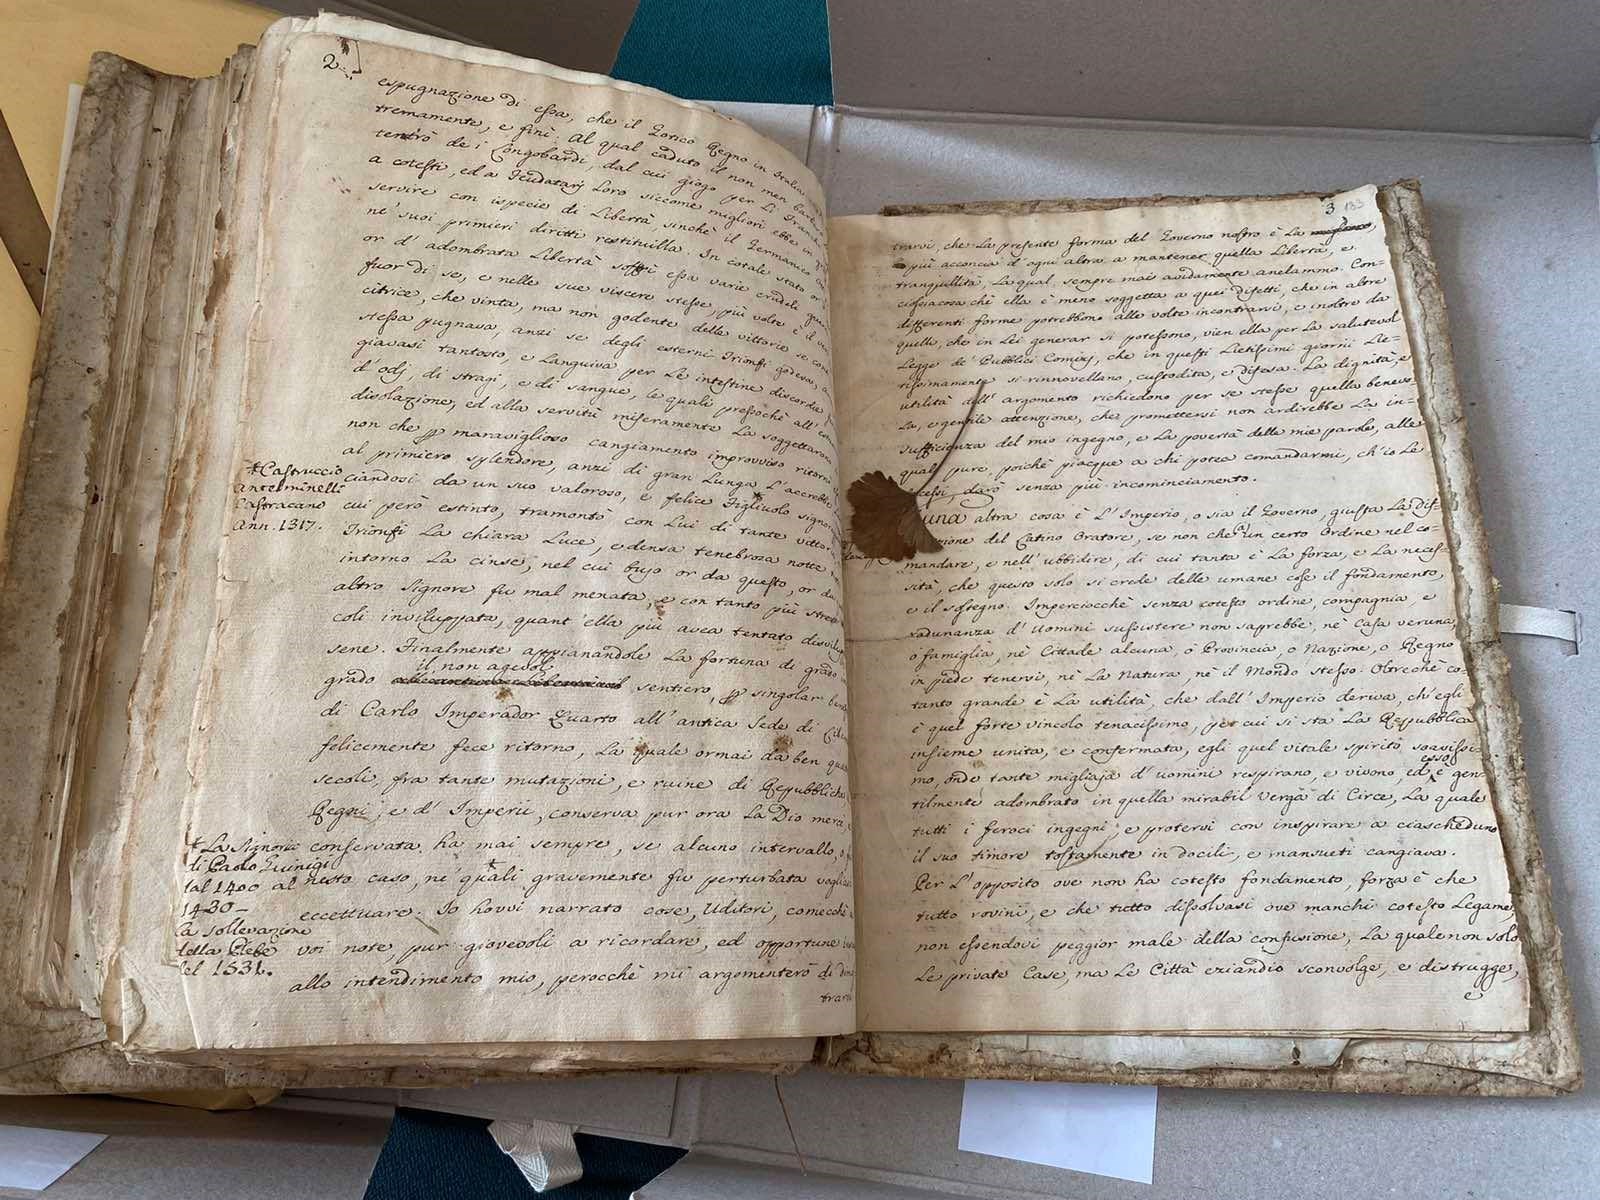 2
espugnazione di essa, che il Gotico Regno in Italia
tremamente, e finì. Al qual caduto il non men barb
tentrò de i Longobardi, dal cui giogo per Li Franchi
a cotesti, ed a Feudatarj Loro siccome migliori ebbe in
servire con ispecie di Libertà, sinchè il Germanico
ne' suoi primieri diritti restituilla. In cotale stato or
or d'adombrata Libertà soffrì essa varie crudeli
fuor di se, e nelle sue viscere stesse, più volte
citrice, che vinta, ma non godente delle vittorie se con
stessa pugnava, anzi se degli esterni Trionfi godeva,
giavasi tantosto, e Languiva per Le intestine discordie
d'odj, di stragi, e di sangue, le quali pressochè all'
disolazione, ed alla servitù miseramente La soggettarono
non che p maraviglioso cangiamento improvviso ritorn
al primiero splendore, anzi di gran Lunga L'accrebbe
ciandosi da un suo valoroso, e felice Figliuolo signor
*Castruccio
Antelminelli
Castracano
Ann. 1317.
cui però estinto, tramontò con Lui di tante vittor
Trionfi La chiara Luce, e densa tenebrosa notte
intorno La cinse, nel cui bujo or da questo, or da
altro Signore fu mal menata, e con tanto più stre
coli inviluppata, quant'ella più avea tentato disvilup
sene. Finalmente appianandole La fortuna di grado in
il non agevol
grado sentiero, p singolar bene
di Carlo Imperador Quarto all'antica Sede di Lib
felicemente fece ritorno, La quale ormai da ben qua
secoli, fra tante mutazioni, e ruine di Repubbliche
Regni, e d'Imperii, conserva pur ora La Dio mercè,
conservata ha mai sempre, se alcuno intervallo, o
nesto caso, ne' quali gravemente fu perturbata vogliasi
eccettuare. Io hovvi narrato cose, Uditori, comecchè a
voi note, pur giovevoli a ricordare, ed opportune
allo intendimento mio, perocchè mi argomenterò di dimo
*La Signoria
di Paolo Guinigi
dal 1400 al
1430 -
La sollevazione
della Plebe
del 1531.
trarvi
3 133
trarvi, che La presente forma del Governo nostro è La
più acconcia d'ogni altra a mantener quella Libertà, e
tranquillità, La qual sempre mai avidamente anelammo. Con-
ciossiacosa chè ella è meno soggetta a quei difetti, che in altre
differenti forme potrebbono alle volte incontrarsi, e inoltre da
quelli, che in Lei generar si potessono, vien ella per La salutevol
Legge de' Pubblici Comizj, che in questi Lietissimi giorni Lie-
tissimamente si rinnovellano, custodita, e difesa. La dignità, e
utilità dell'argomento richiedono per se stesse quella benevo-
La, e gentile attenzione, che promettersi non ardirebbe La in-
sufficienza del mio ingegno, e La povertà delle mie parole, alle
quali pure, poichè piacque a chi potea comandarmi, ch'io Le
facessi, darò senza più incominciamento.
Niuna altra cosa è L'Imperio, o sia il Governo, giusta La dif-
inizione del Latino Oratore, se non che un certo Ordine nel co-
mandare, e nell'ubbidire, di cui tanta è La forza, e La neces-
sità, che questo solo si crede delle umane cose il fondamento,
e il sostegno. Imperciocchè senza cotesto ordine, compagnia, e
radunanza d'Uomini sussistere non saprebbe, nè Casa veruna,
o famiglia, nè Cittade alcuna, o Provincia, o Nazione, o Regno
in piede tenersi, nè La Natura, nè il Mondo stesso. Oltrechè co-
tanto grande è La utilità, che dall'Imperio deriva, ch'egli
è quel forte vincolo tenacissimo, per cui si sta La Repubblica
insieme unita, e confermata, egli quel vitale spirito soavissi-
mo, onde tante migliaja d'uomini respirano, e vivono, ed esso è gen-
tilmente adombrato in quella mirabil Verga di Circe, La quale
tutti i feroci ingegni, e protervi con inspirare a ciascheduno
il suo timore tostamente in docili, e mansueti cangiava.
Per L'opposito ove non ha cotesto fondamento, forza è che
tutto rovini, e che tutto dissolvasi ove manchi cotesto Legame,
non essendovi peggior male della confusione, La quale non solo
Le private Case, ma Le Città eziandio sconvolge, e distrugge,
e